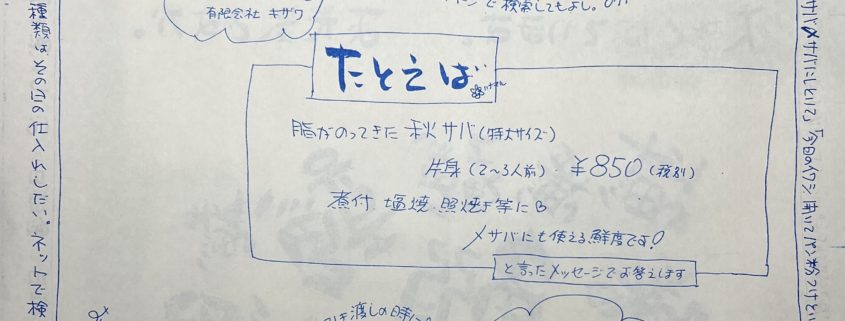 有限会社 キザワ
で検索してもよし。
たとえば
脂がのってきた 秋サバ(特大サイズ)
片身(2〜3人前)・¥850(税別)
煮付 塩焼 照焼き等にも
〆サバにも使える鮮度です!
と言ったメッセージでお答えします
渡しの時に
種類はその日の仕入れしだい。ネットで検
サバ〆サバにしといて」「今日のイワシ 開いてパン粉つけとい